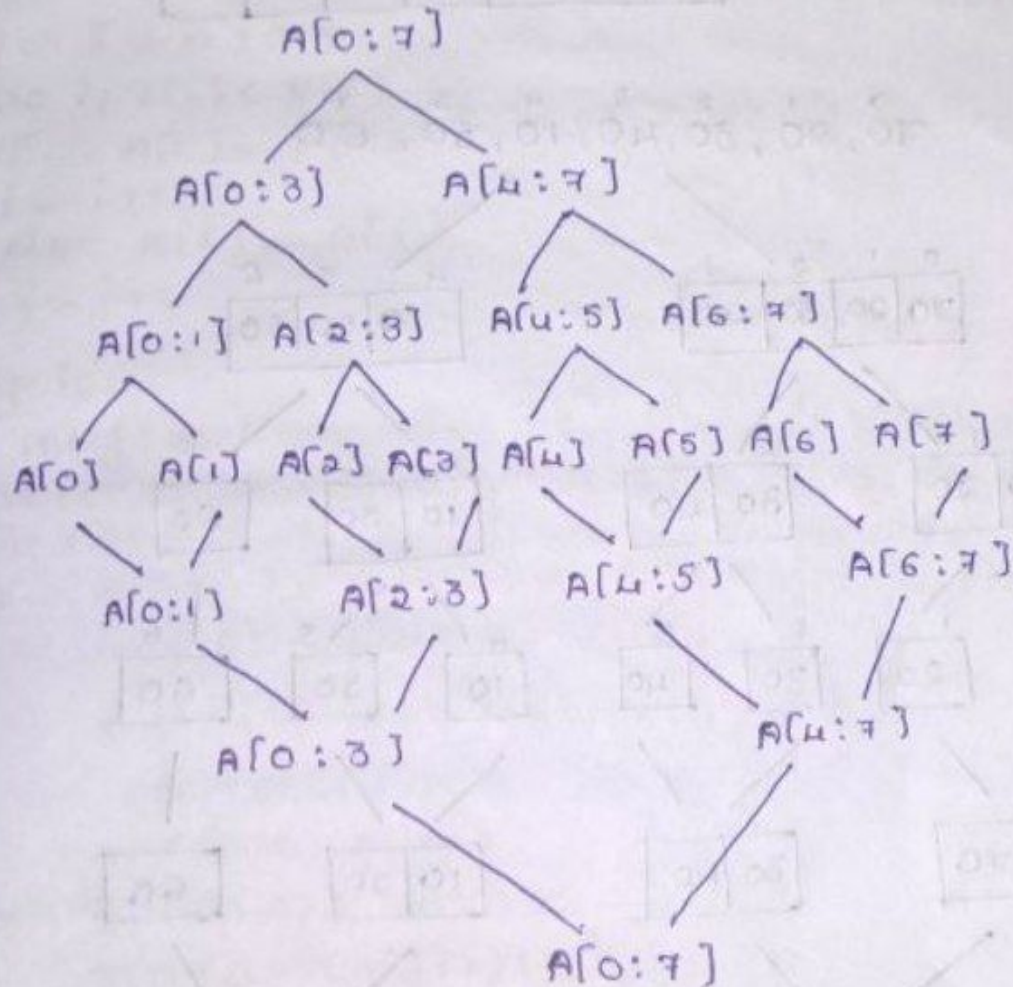 A[0:7]
A[0:3] A[4:7]
A[0:1] A[2:3] A[4:5] A[6:7]
A[0] A[1] A[2] A[3] A[4] A[5] A[6] A[7]
A[0:1] A[2:3] A[4:5] A[6:7]
A[0:3] A[4:7]
A[0:7]